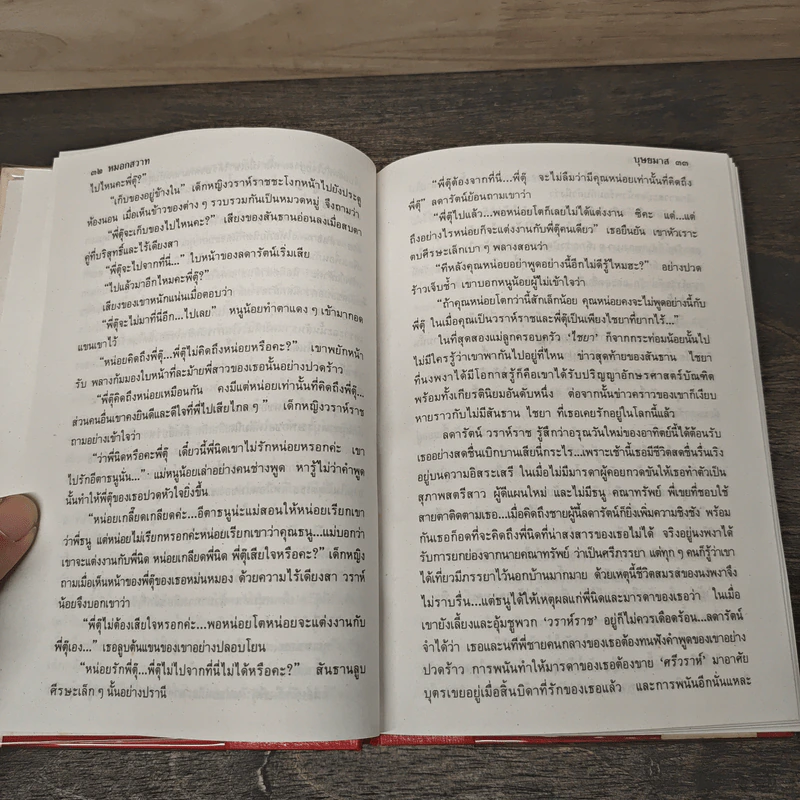 ๓๒ หมอกสวาท
ไปไหนคะพี่ตุ๊?”
“เก็บของอยู่ข้างใน” เด็กหญิงวราห์ราชชะโงกหน้าไปยังประตู
ห้องนอน เมื่อเห็นข้าวของต่าง ๆ รวบรวมกันเป็นหมวดหมู่ จึงถามว่า
“พี่ตุ๊จะเก็บของไปไหนคะ?” เสียงของสันธานอ่อนลงเมื่อสบตา
คู่ที่บริสุทธิ์และไร้เดียงสา
“พี่ตุ๊จะไปจากที่นี่...” ใบหน้าของลดารัตน์เริ่มเสีย
“ไปแล้วมาอีกไหมคะพี่ตุ๊?”
เสียงของเขาหนักแน่นเมื่อตอบว่า
“พี่ตุ๊จะไม่มาที่นี่อีก...ไปเลย” หนูน้อยทำตาแดง ๆ เข้ามากอด
แขนเขาไว้
“หน่อยคิดถึงพี่ตุ๊...พี่ตุ๊ไม่คิดถึงหน่อยหรือคะ?” เขาพยักหน้า
รับ พลางก้มมองใบหน้าที่ละม้ายพี่สาวของเธอนั้นอย่างปวดร้าว
“พี่ตุ๊คิดถึงหน่อยเหมือนกัน คงมีแต่หน่อยเท่านั้นที่คิดถึงพี่ตุ๊...
ส่วนคนอื่นเขาคงยินดีและดีใจที่พี่ไปเสียไกล ๆ” เด็กหญิงวราห์ราช
ถามอย่างเข้าใจว่า
“ว่าพี่นิดหรือคะพี่ตุ๊ เดี๋ยวนี้พี่นิดเขาไม่รักหน่อยหรอกค่ะ เขา
ไปรักอีตาธนูนั่น...” แม่หนูน้อยเล่าอย่างคนช่างพูด หารู้ไม่ว่าคำพูด
นั้นทำให้พี่ตุ๊ของเธอปวดหัวใจยิ่งขึ้น
“หน่อยเกลี๊ยดเกลียดค่ะ...อีตาธนูน่ะแม่สอนให้หน่อยเรียกเขา
ว่าพี่ธนู แต่หน่อยไม่เรียกหรอกค่ะหน่อยเรียกเขาว่าคุณธนู...แม่บอกว่า
เขาจะแต่งงานกับพี่นิด หน่อยเกลียดพี่นิด พี่ตุ๊เสียใจหรือคะ?” เด็กหญิง
ถามเมื่อเห็นหน้าของพี่ตุ๊ของเธอหม่นหมอง ด้วยความไร้เดียงสา วราห์
น้อยจึงบอกเขาว่า
“พี่ตุ๊ไม่ต้องเสียใจหรอกค่ะ...พอหน่อยโตหน่อยจะแต่งงานกับ
พี่ตุ๊เอง...” เธอลูบต้นแขนของเขาอย่างปลอบโยน
“หน่อยรักพี่ตุ๊...พี่ตุ๊ไม่ไปจากที่นี่ไม่ได้หรือคะ?” สันธานลูบ
ศีรษะเล็ก ๆ นั้นอย่างปรานี
บุษยมาส ๓๓
“พี่ตุ๊ต้องจากที่นี่...พี่ตุ๊ จะไม่ลืมว่ามีคุณหน่อยเท่านั้นที่คิดถึง
พี่ตุ๊” ลดารัตน์ย้อนถามเขาว่า
“พี่ตุ๊ไปแล้ว...พอหน่อยโตก็เลยไม่ได้แต่งงาน ซิคะ แต่...แต่
ถึงอย่างไรหน่อยก็จะแต่งงานกับพี่ตุ๊คนเดียว” เธอยืนยัน เขาหัวเราะ
ตบศีรษะเล็กเบา ๆ พลางสอนว่า
“ทีหลังคุณหน่อยอย่าพูดอย่างนี้อีกไม่ดีรู้ไหมฮะ?” อย่างปวด
ร้าวเจ็บช้ำ เขาบอกหนูน้อยผู้ไม่เข้าใจว่า
“ถ้าคุณหน่อยโตกว่านี้สักเล็กน้อย คุณหน่อยคงจะไม่พูดอย่างนี้กับ
พี่ตุ๊ ในเมื่อคุณเป็นวราห์ราชและพี่ตุ๊เป็นเพียงไชยาที่ยากไร้...”
ในที่สุดสองแม่ลูกครอบครัว ‘ไชยา’ ก็จากกระท่อมน้อยนั้นไป
ไม่มีใครรู้ว่าเขาพากันไปอยู่ที่ไหน ข่าวสุดท้ายของสันธาน ไชยา
ที่นงพงาได้มีโอกาสรู้ก็คือเขาได้รับปริญญาอักษรศาสตร์บัณฑิต
พร้อมทั้งเกียรตินิยมอันดับหนึ่ง ต่อจากนั้นข่าวคราวของเขาก็เงียบ
หายราวกับไม่มีสันธาน ไชยา ที่เธอเคยรักอยู่ในโลกนี้แล้ว
ลดารัตน์ วราห์ราช รู้สึกว่าอรุณวันใหม่ของอาทิตย์นี้ได้ต้อนรับ
เธออย่างสดชื่นเบิกบานเสียนี่กระไร...เพราะเช้านี้เธอมีชีวิตสดชื่นรื่นเริง
อยู่บนความอิสระเสรี ในเมื่อไม่มีมารดาผู้คอยกวดขันให้เธอทำตัวเป็น
สุภาพสตรีสาว ผู้ดีแผนใหม่ และไม่มีธนู คณาทรัพย์ พี่เขยที่ชอบใช้
สายตาติดตามเธอ...เมื่อคิดถึงชายผู้นี้ลดารัตน์ก็ยิ่งเพิ่มความชิงชัง พร้อม
กันเธอก็อดที่จะคิดถึงพี่นิดที่น่าสงสารของเธอไม่ได้ จริงอยู่นงพงาได้
รับการยกย่องจากนายคณาทรัพย์ ว่าเป็นศรีภรรยา แต่ทุก ๆ คนก็รู้ว่าเขา
ได้เที่ยวมีภรรยาไว้นอกบ้านมากมาย ด้วยเหตุนี้ชีวิตสมรสของนงพงาจึง
ไม่ราบรื่น...แต่ธนูได้ให้เหตุผลแก่พี่นิดและมารดาของเธอว่า ในเมื่อ
เขายังเลี้ยงและอุ้มชูพวก ‘วราห์ราช’ อยู่ก็ไม่ควรเดือดร้อน...ลดารัตน์
จำได้ว่า เธอและนทีพี่ชายคนกลางของเธอต้องทนฟังคำพูดของเขาอย่าง
ปวดร้าว การพนันทำให้มารดาของเธอต้องขาย ‘ศรีวราห์’ มาอาศัย
บุตรเขยอยู่เมื่อสิ้นบิดาที่รักของเธอแล้ว และการพนันอีกนั่นแหละ